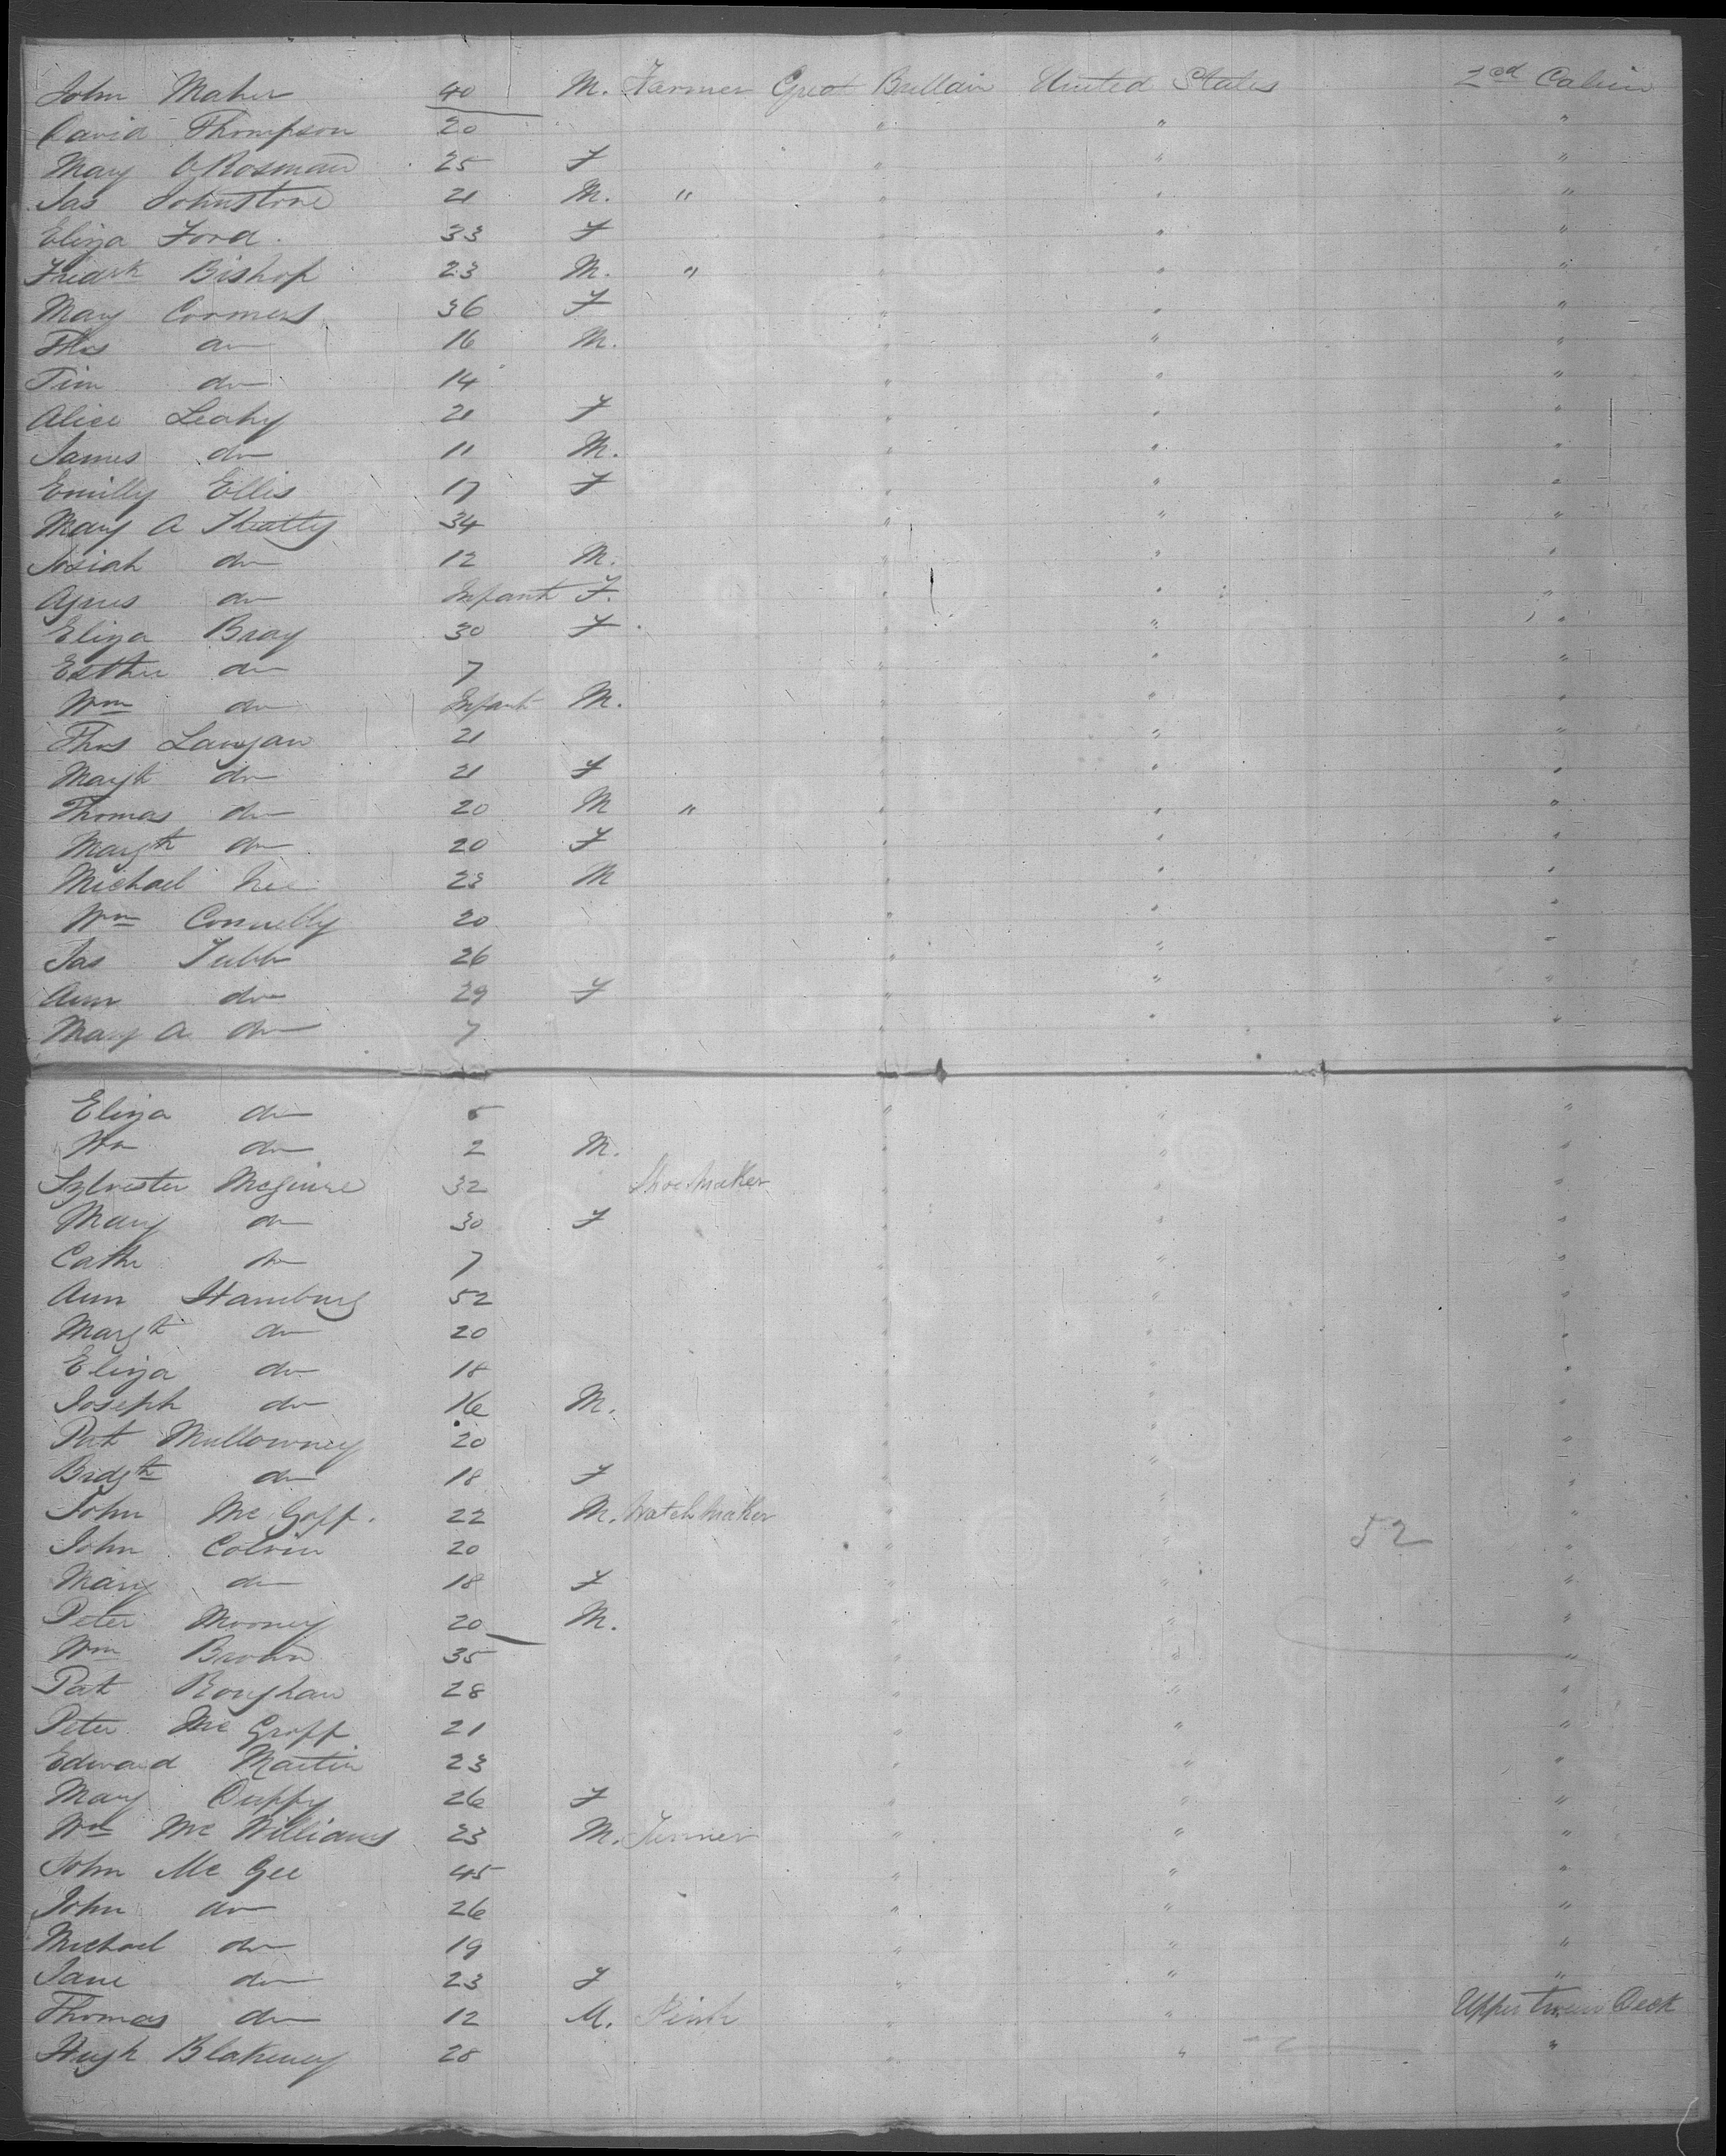 John Maher 40 M. Farmer Great Brittain United States 2nd Cabin
David Thompson 20 " " "
Mary O Rosman 25 F " " "
Jas Johnstone 21 M. " " " "
Eliza Ford. 33 F " " "
Fredrk Bishop 23 M. " " " "
Mary Connors 36 F " " "
Thos do 16 M. " " "
Tim do 14 " " "
Alice Leahy 21 F " " "
James do 11 M. " " "
Emilly Ellis 17 F " " "
Mary A 34 " " "
Josiah do 12 M. " " "
Agnes do Infant F. " " "
Eliza Bray 30 F " " "
Esther do 7 " " "
Wm do Infant M. " " "
Thos Langan 21 " " "
Margt do 21 F " " "
Thomas do 20 M " " " "
Margt do 20 F " " "
Michael Nee 23 M " " "
Wm Connelly 20 " " "
Jas Tubb 26 " " "
Ann do 29 F " " "
Mary A do 7 " " "
Eliza do 5 " " "
Wm do 2 M. " " "
Sylvester McGuire 32 Shoemaker " " "
Mary do 30 F " " "
Cathe do 7 " " "
Ann Hamburg 52 " " "
Margt do 20 " " "
Eliza do 18 " " "
Joseph do 16 M. " " "
Pat Mullowney 20 " " "
Bridgt do 18 F " " "
John Mc Goff. 22 M. Watchmaker " " "
John Colvin 20 " " 52 "
Mary do 18 F " " "
Peter Mooney 20 M. " " "
Wm Brown 35 " " "
Pat Roughan 28 " " "
Peter Mc Groff 21 " " "
Edward Martin 23 " " "
Mary Duffy 26 F " " "
Wm Mc Williams 23 M. " " "
John Mc Gee 45 " " "
John do 26 " " "
Michael do 19 " " "
Jane do 23 F " " "
Thomas do 12 M. " " Upper tween Deck
Hugh Blakeney 28 " " "